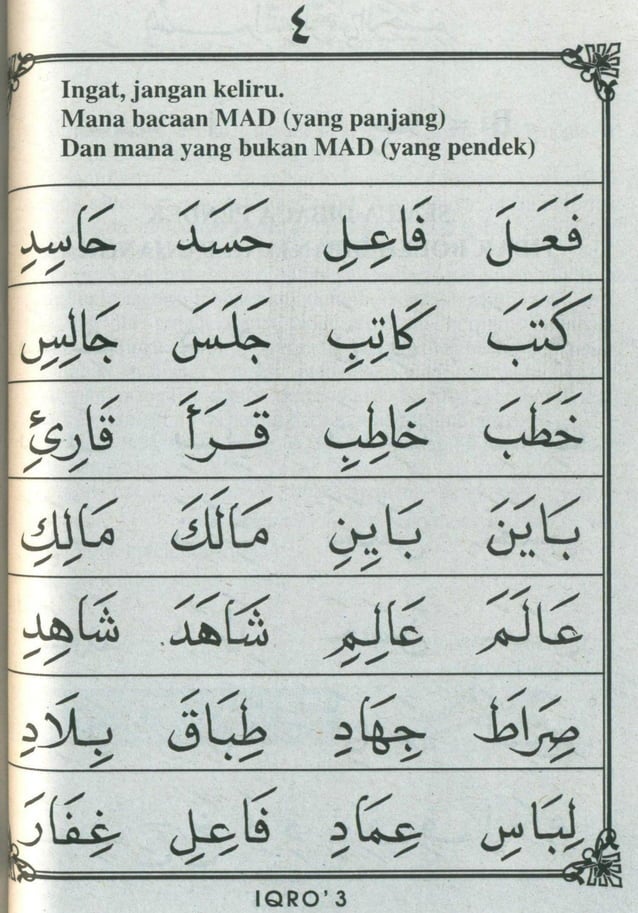 ٤
Ingat, jangan keliru.
Mana bacaan MAD (yang panjang)
Dan mana yang bukan MAD (yang pendek)
فَعَلَ فَاعِلِ حَسَدَ حَاسِدِ
كَتَبَ كَاتِبِ جَلَسَ جَالِسِ
خَطَبَ خَاطِبِ قَرَأَ قَارِئِ
بَايَنَ بَايِنِ مَالَكَ مَالِكِ
عَالَمَ عَالِمِ شَاهَدَ شَاهِدِ
صِرَاطَ جِهَادِ طِبَاقَ بِلَادِ
لِبَاسِ عِمَادِ فَاعِلِ غِفَارَ
IQRO' 3